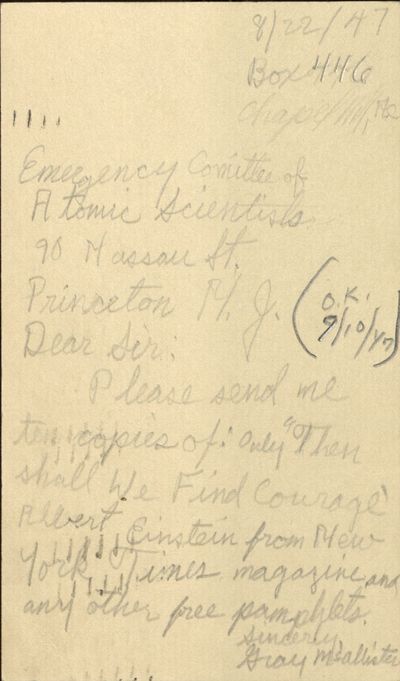 8/22/47
Box 446
Chapel Hill, NC
Emergency Comittee of
Atomic Scientists
90 Nassau St.
Princeton N. J.
(O.K.
9/10/47)
Dear Sir:
Please send me
ten copies of: only "Then
shall We Find Courage"
Albert Einstein from New
York Times magazine and
any other free pamphlets.
Sincerly,
Gray McAllister